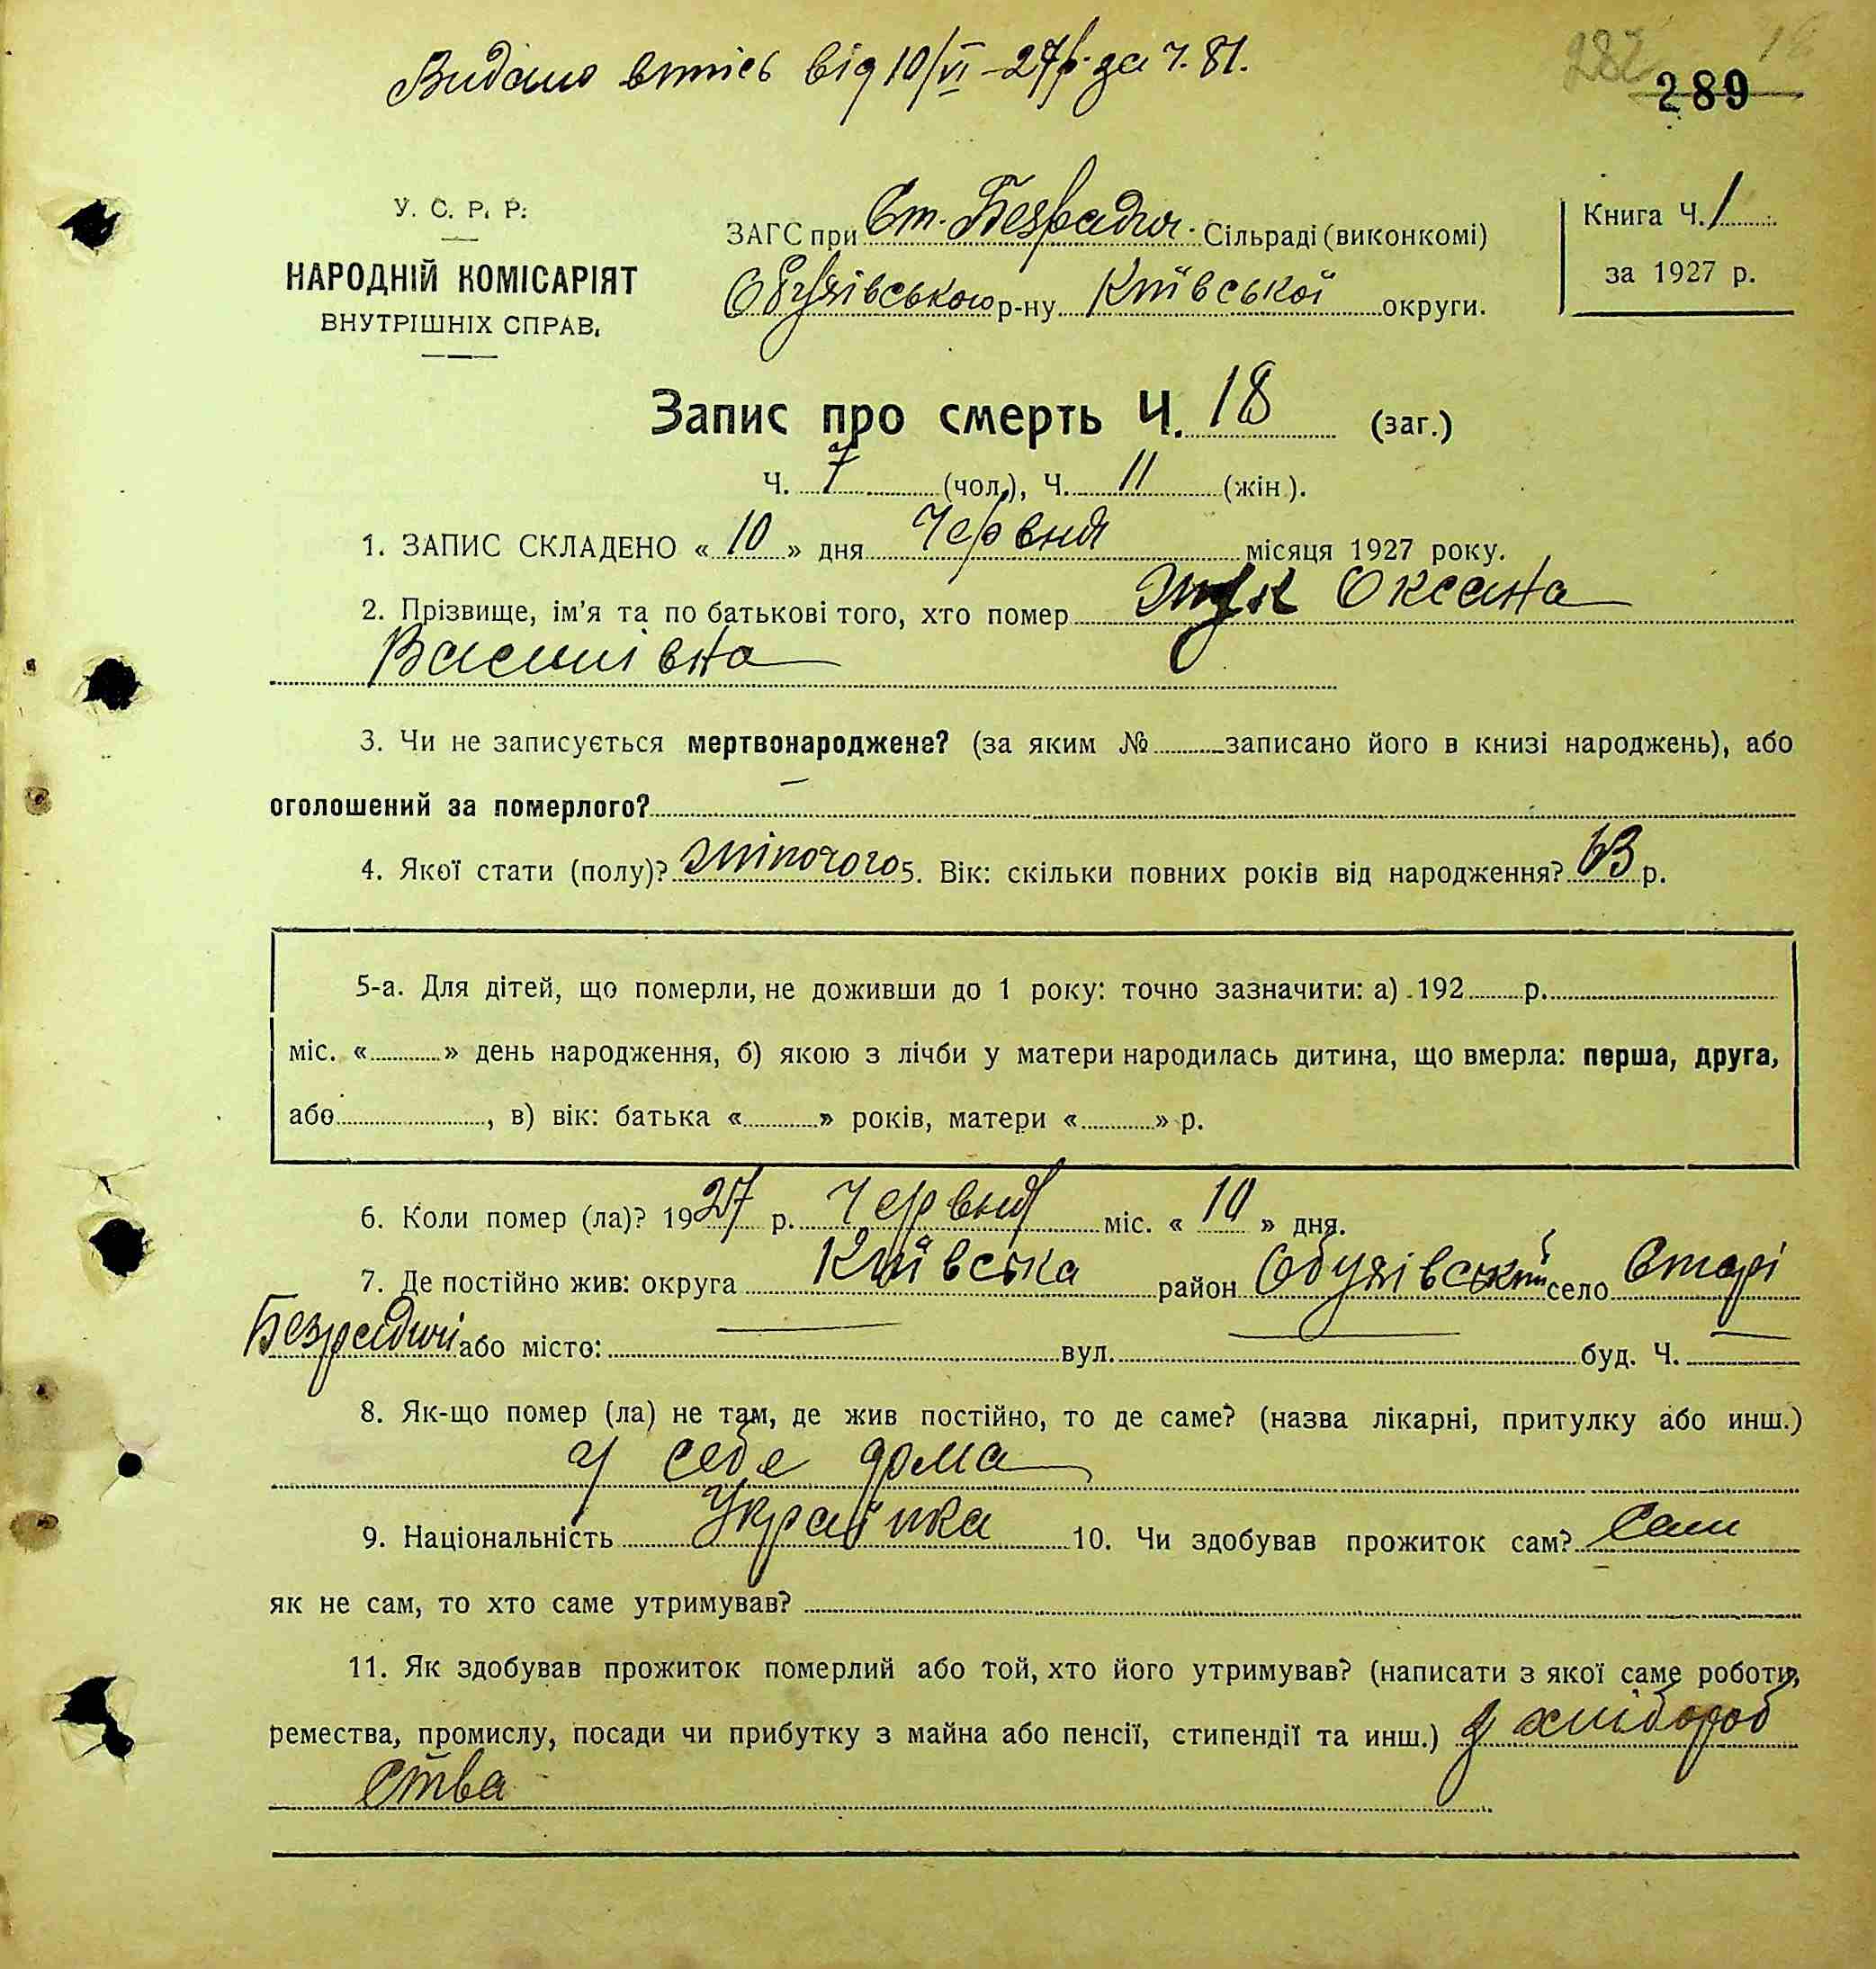 Видано витяг від 10/VI-27р. за Ч. 81.
289
У. С. Р. Р.
НАРОДНІЙ КОМІСАРІЯТ
ВНУТРІШНІХ СПРАВ.
ЗАГС при Ст. Безрадич. Сільраді (виконкомі)
Обухівського р-ну Київської округи.
Книга Ч. 1
за 1927 р.
Запис про смерть Ч. 18 (заг.)
Ч. 7 (чол.), Ч. 11 (жін.).
1. ЗАПИС СКЛАДЕНО « 10 » дня Червня місяця 1927 року.
2. Прізвище, ім'я та по батькові того, хто помер Жук Оксана
Василівна
3. Чи не записується мертвонароджене? (за яким № записано його в книзі народжень), або
оголошений за померлого?
4. Якої стати (полу)? жіночого 5. Вік: скільки повних років від народження? 63 р.
5-а. Для дітей, що померли, не доживши до 1 року: точно зазначити: а) 192 р.
міс. « » день народження, б) якою з лічби у матери народилась дитина, що вмерла: перша, друга,
або , в) вік: батька « » років, матери « » р.
6. Коли помер (ла)? 1927 р. Червня міс. « 10 » дня.
7. Де постійно жив: округа Київська район Обухівський село Старі
Безрадичі або місто: вул. буд. Ч.
8. Як-що помер (ла) не там, де жив постійно, то де саме? (назва лікарні, притулку або инш.)
у себе дома
9. Національність Українка 10. Чи здобував прожиток сам? Сам
як не сам, то хто саме утримував?
11. Як здобував прожиток померлий або той, хто його утримував? (написати з якої саме роботи,
ремества, промислу, посади чи прибутку з майна або пенсії, стипендії та инш.) з хлібороб
ства